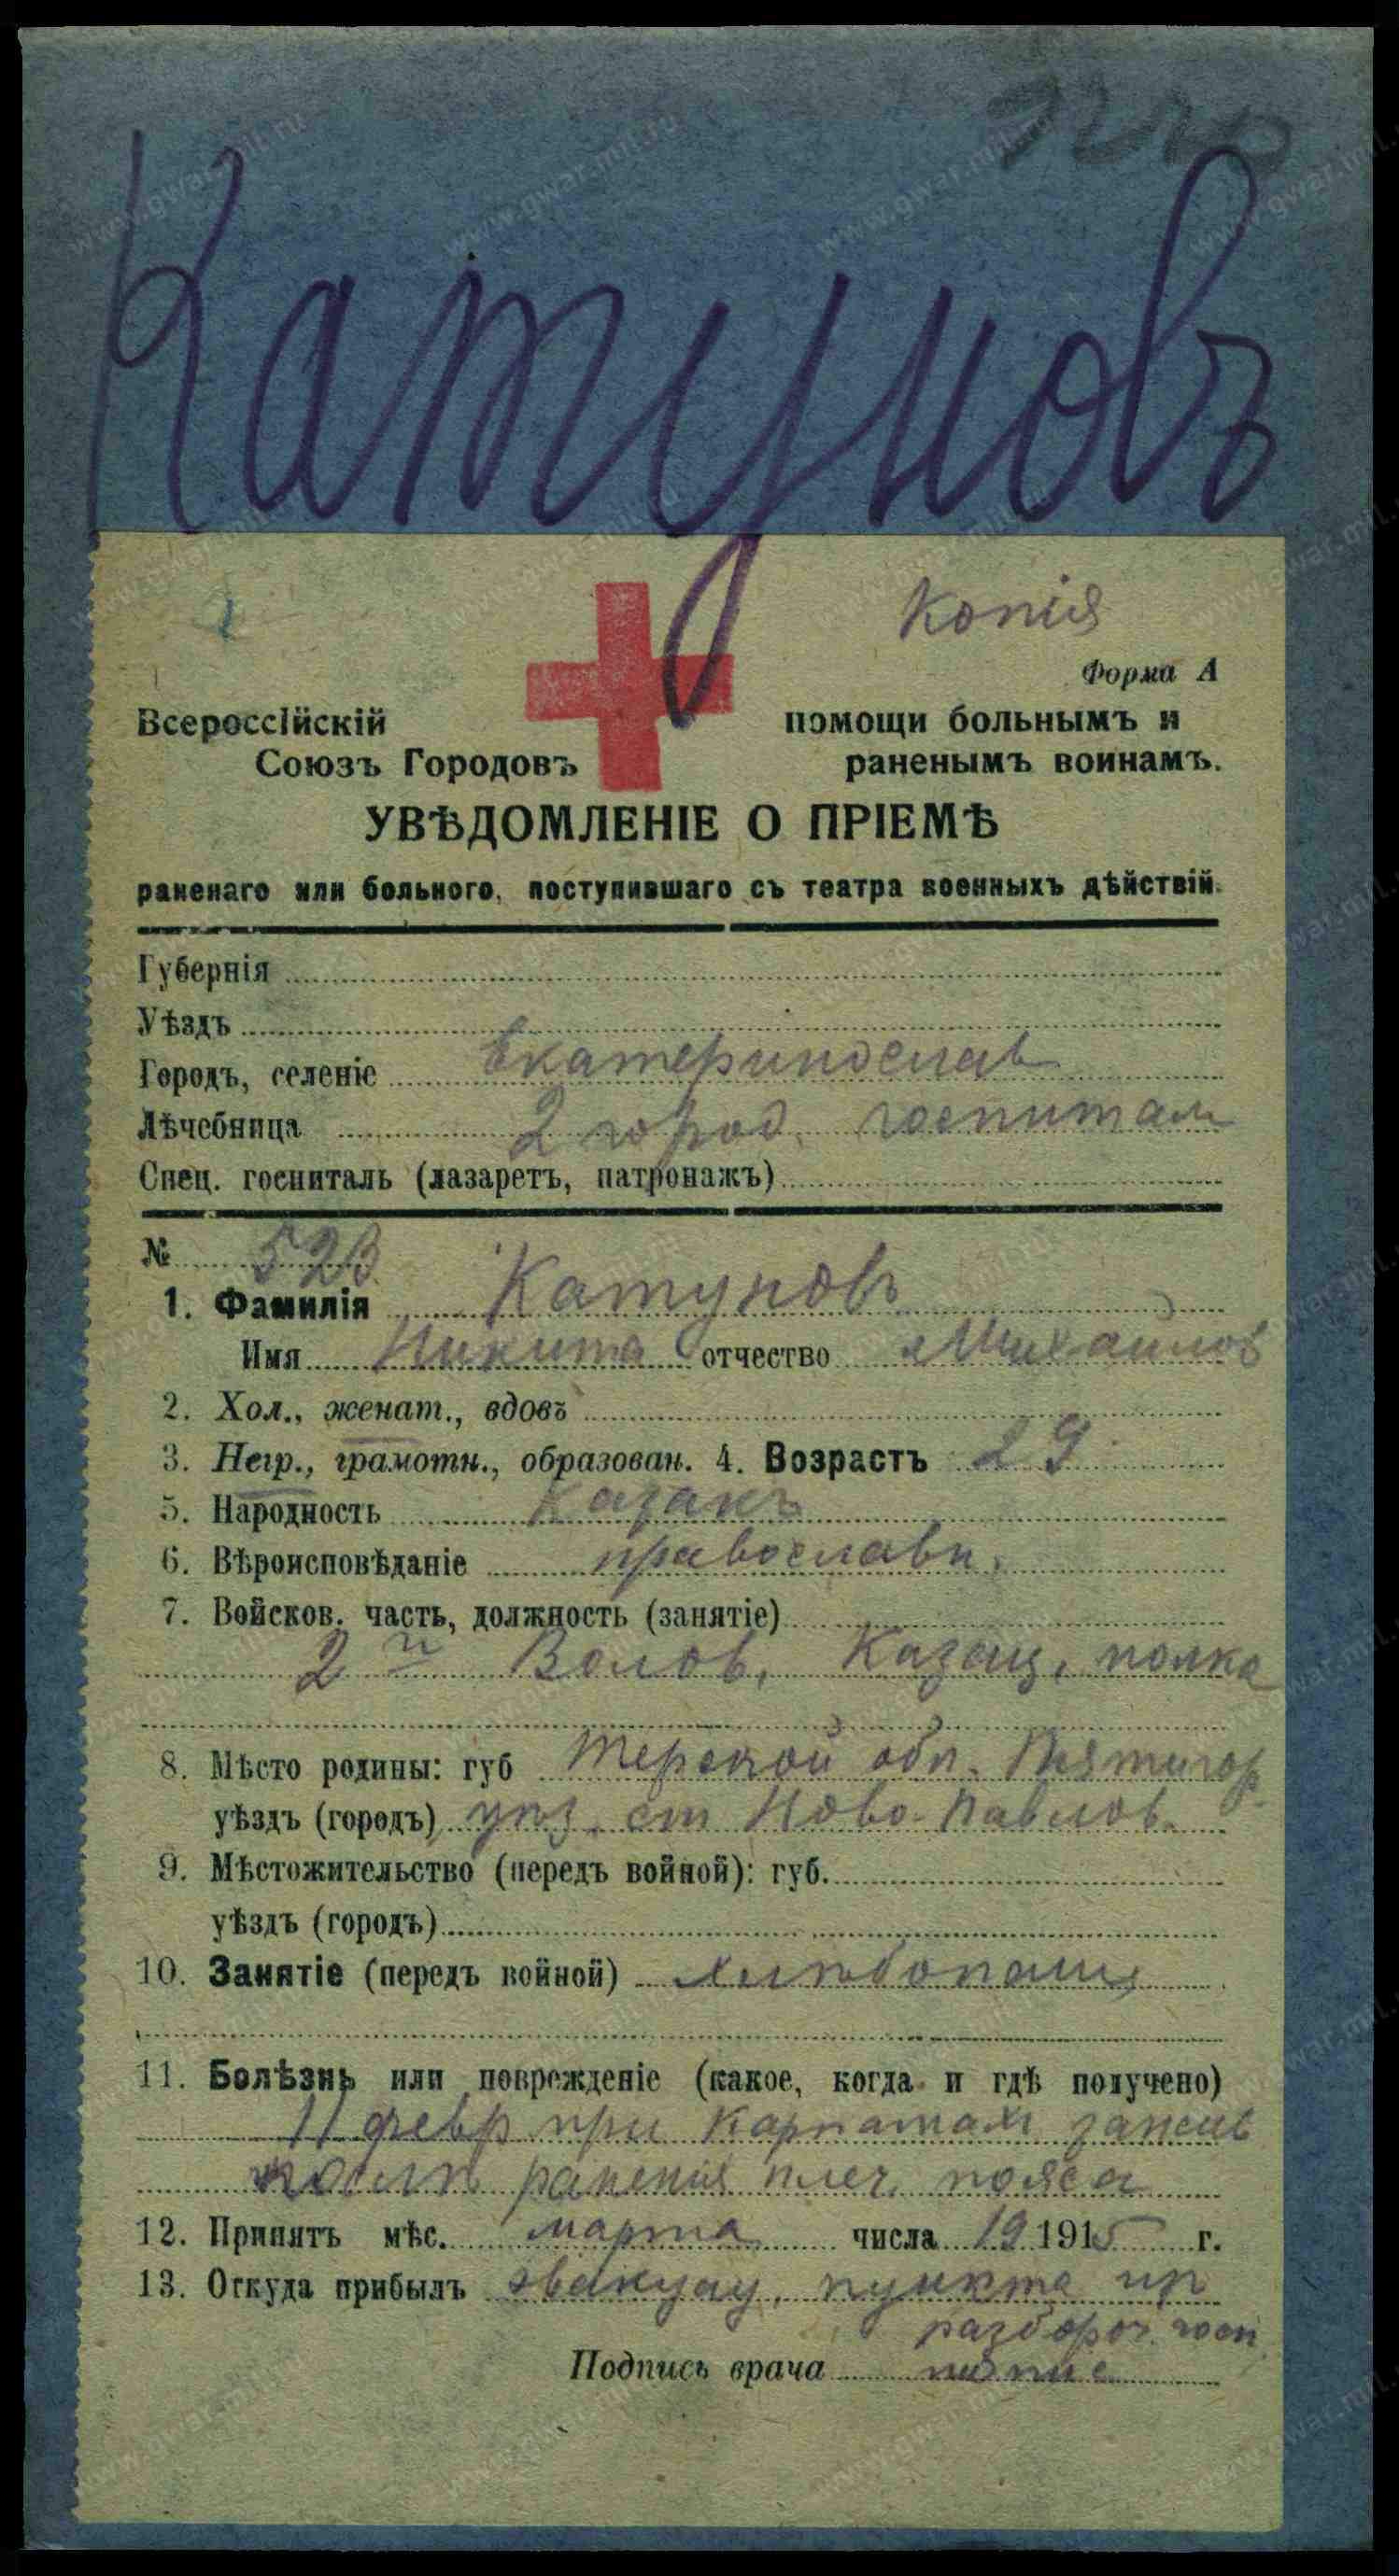 Катуновъ
Копія
Форма А
Всероссійскій
Союзъ Городовъ
помощи больнымъ и
раненымъ воинамъ.
УВѢДОМЛЕНІЕ О ПРІЕМѢ
раненаго или больного, поступившаго съ театра военныхъ дѣйствій.
Губернія
Уѣздъ
Городъ, селеніе Екатеринослав
Лѣчебница 2 город. госпитал
Спец. госпиталь (лазаретъ, патронажъ)
№ 523
1. Фамилія Катуновъ
Имя Никита отчество Михайлов
2. Хол., женат., вдовъ
3. Негр., грамотн., образован. 4. Возрастъ 29
5. Народность Казакъ
6. Вѣроисповѣданіе православн.
7. Войсков. часть, должность (занятіе)
2 й Волов. Казац. полка
8. Мѣсто родины: губ Терской обл. Пятигор
уѣздъ (городъ) уѣз. ст Ново-Павлов.
9. Мѣстожительство (передъ войной): губ.
уѣздъ (городъ)
10. Занятіе (передъ войной) хлѣбопаш,
11. Болѣзнь или поврежденіе (какое, когда и гдѣ получено)
11 февр при Карпатахъ
ранения плеч. пояса
12. Принятъ мѣс. марта числа 19 1915 г.
13. Откуда прибылъ эвакуац. пункта
разбороч. госп
Подпись врача